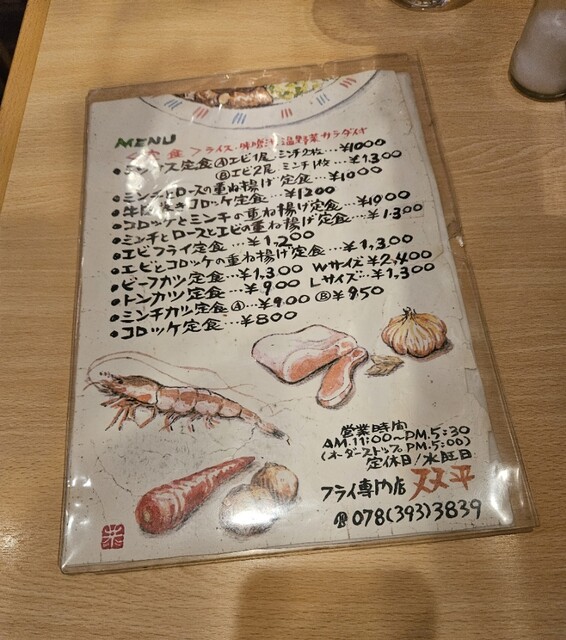 MENU
定食 ライス・味噌汁・温野菜サラダ付
ミックス定食Ⓐエビ1尾 ミンチ2枚…¥1000
Ⓑエビ2尾 ミンチ1枚…¥1,300
•ミンチとロースの重ね揚げ定食…¥1000
•コロッケ定食…¥1200
•コロッケとミンチの重ね揚げ定食…¥1000
•ミンチとロースとエビの重ね揚げ定食…¥1300
•エビフライ定食…¥1,200
•エビとコロッケの重ね揚げ定食…¥1,300
•ビーフカツ定食…¥1,300 Wサイズ¥2,400
•トンカツ定食…¥900 Lサイズ…¥1,300
•ミンチカツ定食Ⓐ…¥900 Ⓑ¥950
•コロッケ定食…¥800
営業時間
AM.11:00~PM.5:30
(オーダーストップPM.5:00)
定休日/水曜日
フライ専門店 双平
☎078(393)3839